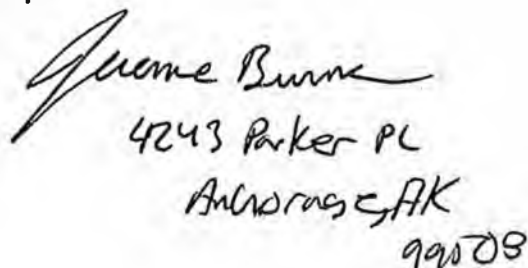 Jerome Burns
4243 Parker PL
Anchorage, AK
99508